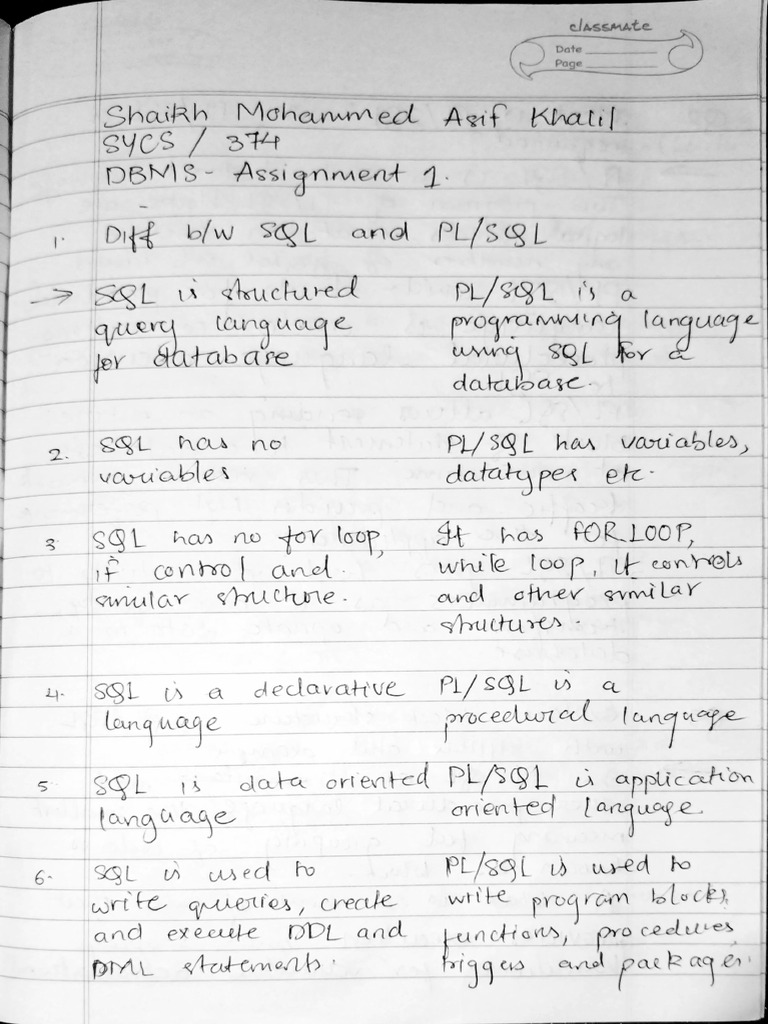 classmate
Date
Page
Shaikh Mohammed Asif Khalil.
SYCS / 374
DBMS - Assignment 1.
1. Diff b/w SQL and PL/SQL
→ SQL is structured PL/SQL is a
query language programming language
for database using SQL for a
database.
2. SQL has no PL/SQL has variables,
variables datatypes etc.
3. SQL has no for loop, It has FOR LOOP,
if control and while loop, if controls
similar structure. and other similar
structures.
4. SQL is a declarative PL/SQL is a
language procedural language
5. SQL is data oriented PL/SQL is application
language oriented language.
6. SQL is used to PL/SQL is used to
write queries, create write program blocks,
and execute DDL and functions, procedures,
DML statements. triggers and packages.